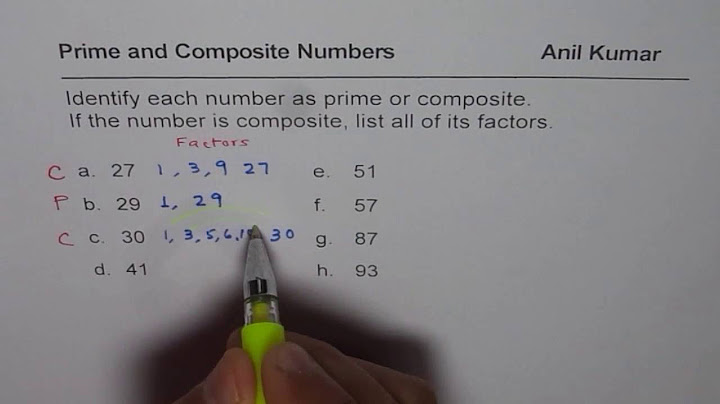 Prime and Composite Numbers Anil Kumar
Identify each number as prime or composite.
If the number is composite, list all of its factors.
Factors
C a. 27 1, 3, 9 27 e. 51
P b. 29 1, 29 f. 57
C c. 30 1, 3, 5, 6, 30 g. 87
d. 41 h. 93